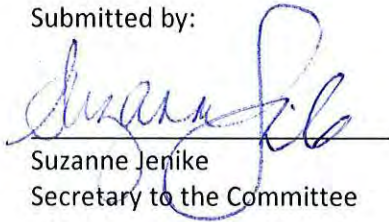 Submitted by:
Suzanne Jenike
Suzanne Jenike
Secretary to the Committee